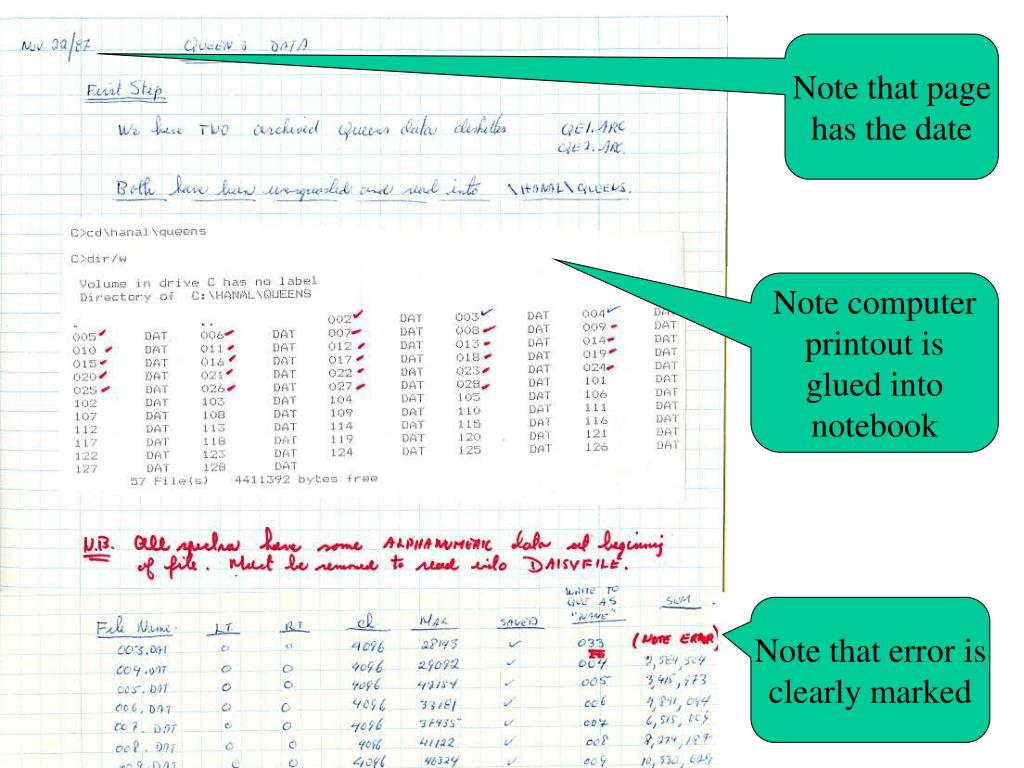 Nov. 22/87 QUEEN'S DATA
Note that page
has the date
First Step.
We have TWO archived Queens data diskettes QE1.ARC
QE2.ARC.
Both have been unsquashed and read into \HANAL\QUEENS.
C>cd\hanal\queens
C>dir/w
Volume in drive C has no label
Directory of C:\HANAL\QUEENS
. .. 002 DAT 003 DAT 004 DAT
005 DAT 006 DAT 007 DAT 008 DAT 009 DAT
010 DAT 011 DAT 012 DAT 013 DAT 014 DAT
015 DAT 016 DAT 017 DAT 018 DAT 019 DAT
020 DAT 021 DAT 022 DAT 023 DAT 024 DAT
025 DAT 026 DAT 027 DAT 028 DAT 101 DAT
102 DAT 103 DAT 104 DAT 105 DAT 106 DAT
107 DAT 108 DAT 109 DAT 110 DAT 111 DAT
112 DAT 113 DAT 114 DAT 115 DAT 116 DAT
117 DAT 118 DAT 119 DAT 120 DAT 121 DAT
122 DAT 123 DAT 124 DAT 125 DAT 126 DAT
127 DAT 128 DAT
57 File(s) 4411392 bytes free
Note computer
printout is
glued into
notebook
N.B. All spectra have some ALPHANUMERIC data at beginning
of file. Must be removed to read into DAISVFILE.
WRITE TO
QUE AS
"NAME"
File Name. LT RT ch MAX SAVED SUM.
003.DAT 0 0 4096 28143 ✓ 033 (NOTE ERROR)
004.DAT 0 0 4096 29092 ✓ 004
005.DAT 0 0 4096 ✓ 005 3,415,973
006.DAT 0 0 4096 33181 ✓ 006
007.DAT 0 0 4096 37435 ✓ 007
008.DAT 0 0 4096 41122 ✓ 008
009.DAT 0 0 4096 46324 ✓ 009
Note that error is
clearly marked